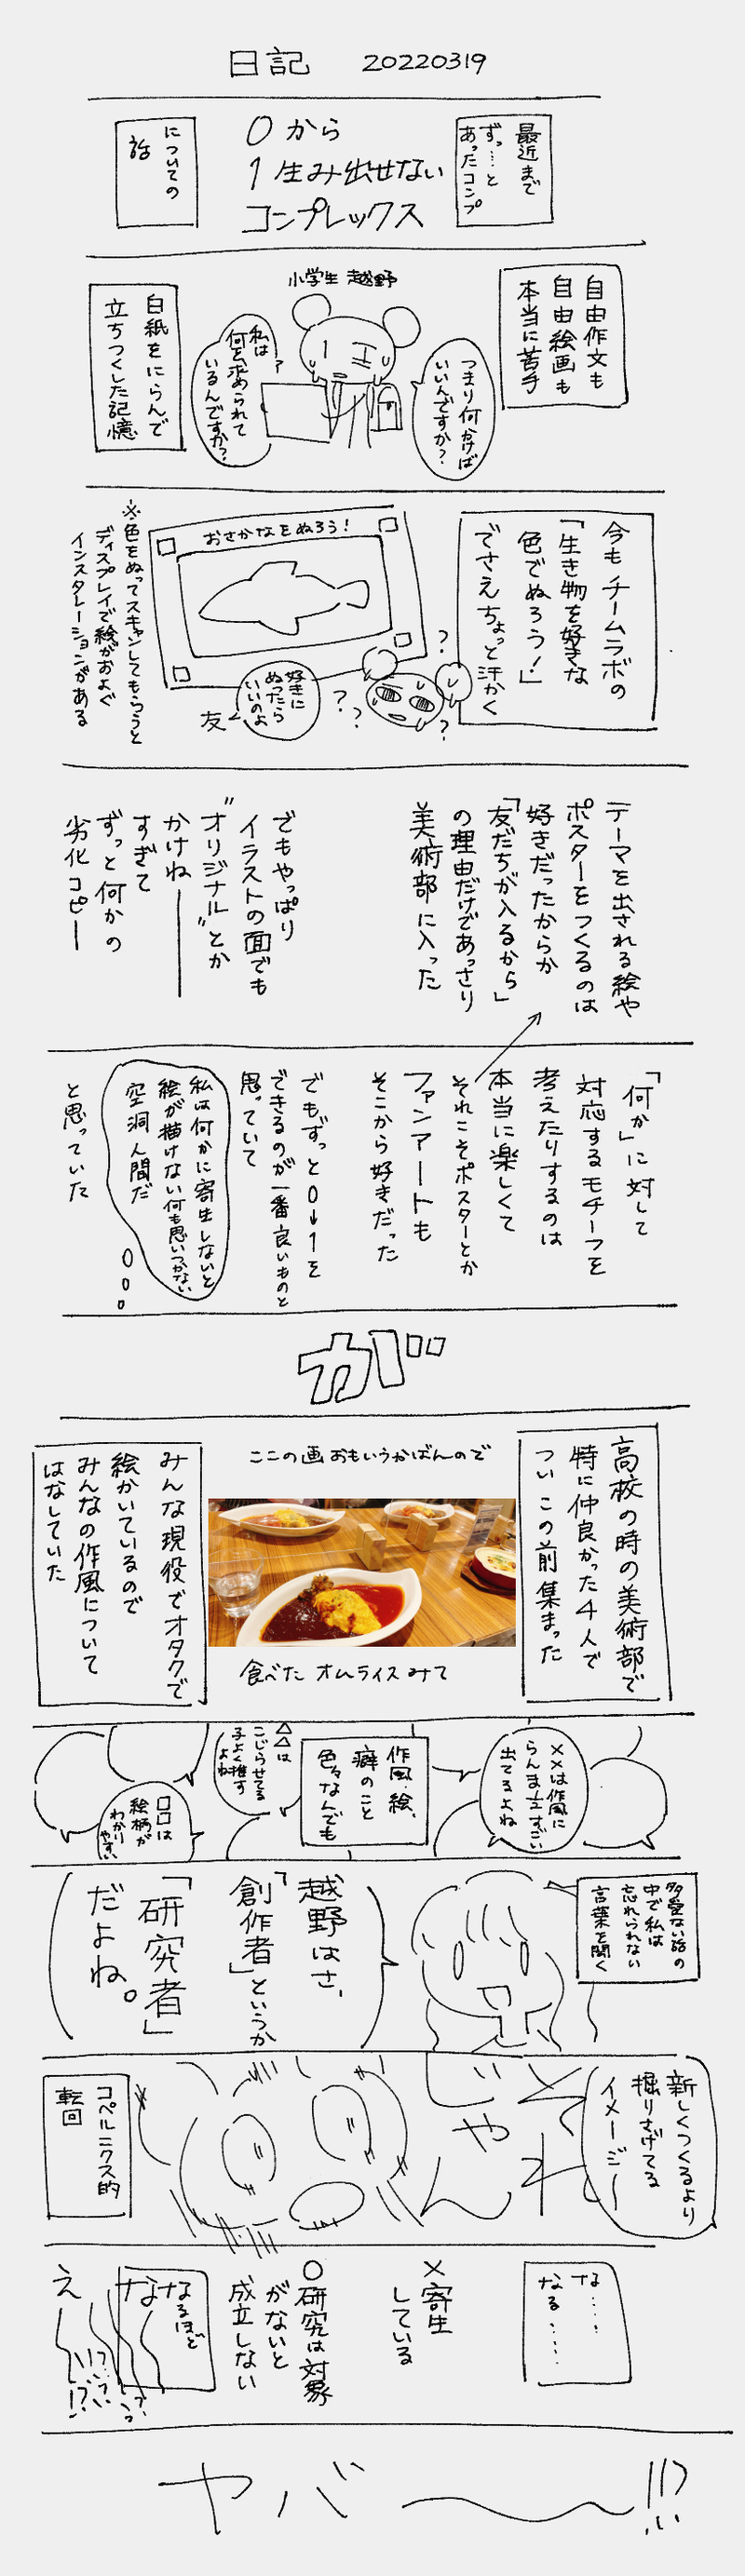 日記 20220319
最近まで
ずっ…と
あったコンプ
0から
1生み出せない
コンプレックス
についての
話
自由作文も
自由絵画も
本当に苦手
小学生 越野
つまり何かけば
いいんですか?
私は
何を求められて
いるんですか?
白紙をにらんで
立ちつくした記憶
今もチームラボの
「生き物を好きな
色でぬろう!」
でさえちょっと汗かく
おさかなをぬろう!
?
?
?
?
好きに
ぬったら
いいのよ
友
※色をぬってスキャンしてもらうと
ディスプレイで絵がおよぐ
インスタレーションがある
テーマを出される絵や
ポスターをつくるのは
好きだったからか
「友だちが入るから」
の理由だけであっさり
美術部に入った
でもやっぱり
イラストの面でも
"オリジナル"とか
かけねー
すぎて
ずっと何かの
劣化コピー
「何か」に対して
対応するモチーフを
考えたりするのは
本当に楽しくて
それこそポスターとか
ファンアートも
そこから好きだった
でもずっと0→1を
できるのが一番良いものと
思っていて
私は何かに寄生しないと
絵が描けない何も思いつかない
空洞人間だ
と思っていた
が
高校の時の美術部で
特に仲良かった4人で
ついこの前集まった
ここの画おもいうかばんので
食べた オムライスみて
みんな現役でオタクで
絵かいているので
みんなの作風について
はなしていた
××は作風に
らんま1/2すごい
出てるよね
作風、絵、
癖のこと
色々なんでも
△△は
こじらせてる
子よく推す
よね
□□は
絵柄が
わかり
やすい
多愛ない話の
中で私は
忘れられない
言葉を聞く
越野はさ、
「創作者」というか
「研究者」
だよね。
新しくつくるより
掘りさげてる
イメージ〜
それ
じゃん
コペルニクス的
転回
な……
なる……
×寄生
している
○研究は対象
がないと
成立しない
なるほど
な
え
!?!?
ヤバ〜!!?